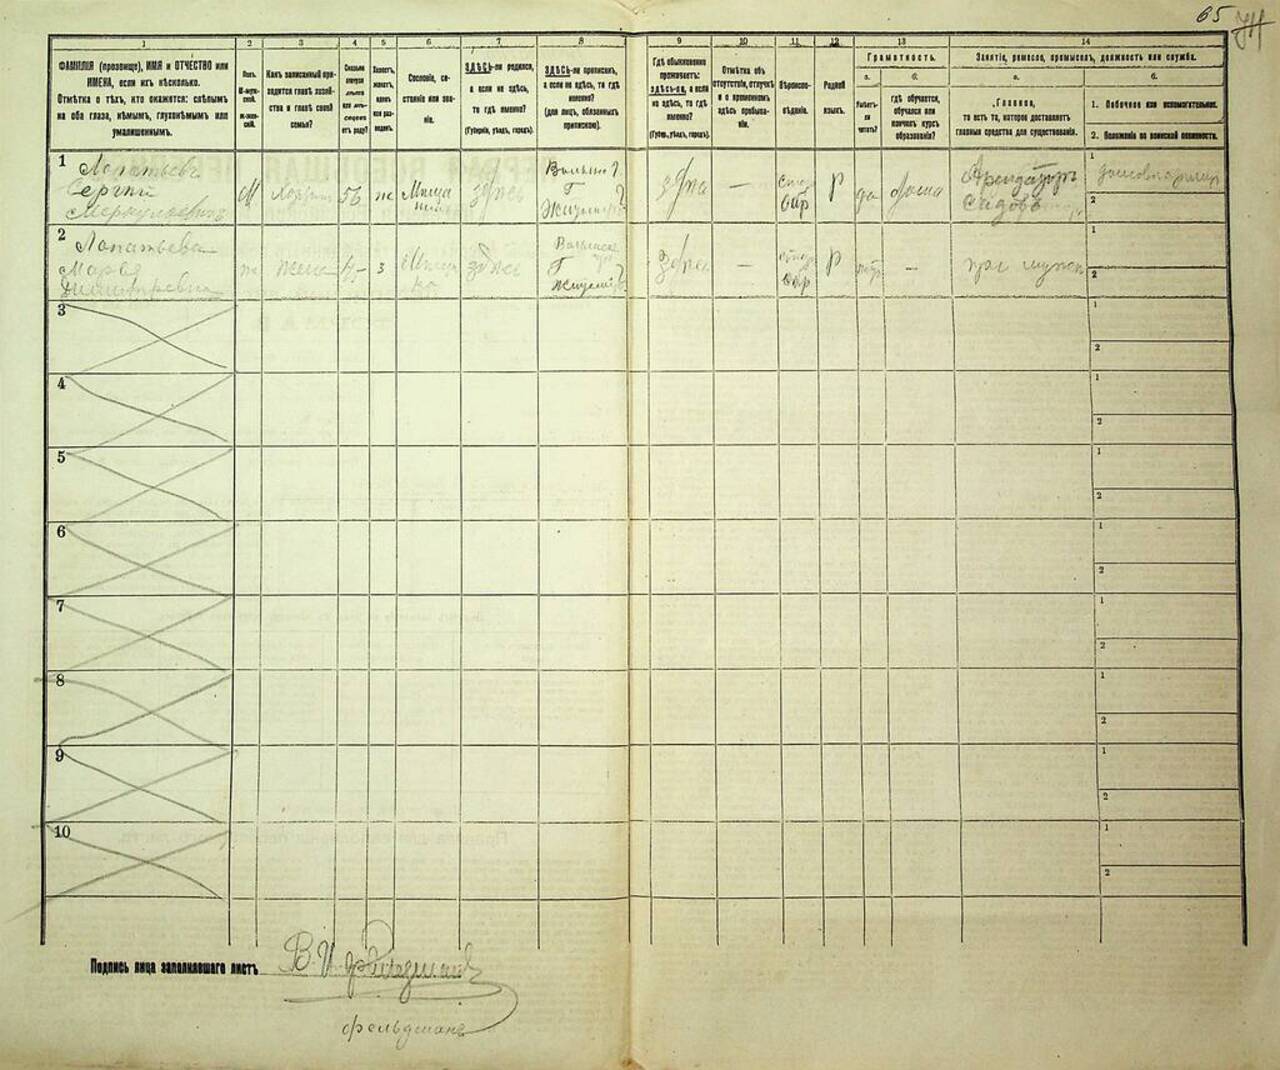 65
1
2
3
4
5
6
7
8
9
10
11
12
13
14
ФАМИЛІЯ (прозвище), ИМЯ и ОТЧЕСТВО или
ИМЕНА, если ихъ нѣсколько.
Отмѣтка о тѣхъ, кто окажется: слѣпымъ
на оба глаза, нѣмымъ, глухонѣмымъ или
умалишеннымъ.
Полъ.
М-муж-
ской.
Ж-жен-
скій.
Какъ записанный при-
ходится главѣ хозяй-
ства и главѣ своей
семьи?
Сколько
минуло
лѣтъ
или мѣ-
сяцевъ
отъ роду?
Холостъ,
женатъ,
вдовъ
или раз-
веденъ.
Сословіе, со-
стояніе или зва-
ніе.
ЗДѢСЬ-ли родился,
а если не здѣсь,
то гдѣ именно?
(Губернія, уѣздъ, городъ).
ЗДѢСЬ-ли приписанъ,
а если не здѣсь, то гдѣ
именно?
(для лицъ, обязанныхъ
припискою).
Гдѣ обыкновенно
проживаетъ:
здѣсь-ли, а если
не здѣсь, то гдѣ
именно?
(Губер., уѣздъ, городъ).
Отмѣтка объ
отсутствіи, отлучкѣ
и о временномъ
здѣсь пребыва-
ніи.
Вѣроиспо-
вѣданіе.
Родной
языкъ.
Грамотность.
а.
Умѣетъ-
ли
читать?
б.
гдѣ обучается,
обучался или
кончилъ курсъ
образованія?
Занятіе, ремесло, промыселъ, должность или служба.
а.
Главное,
то есть то, которое доставляетъ
главныя средства для существованія.
б.
1. Побочное или вспомогательное.
2. Положеніе по воинской повинности.
1
Сергѣй
Меркульевичъ
М
56
ж
здѣсь
Житомиръ
—
Р
да
дома
Арендаторъ
Садовъ
1
2
2
Лопатьева
Марья
Дмитріевна
ж
жена
з
здѣсь
—
Р
—
при мужѣ
1
2
3
1
2
4
1
2
5
1
2
6
1
2
7
1
2
8
1
2
9
1
2
10
1
2
Подпись лица заполнившаго листъ
В. И. Фельдманъ
фельдманъ